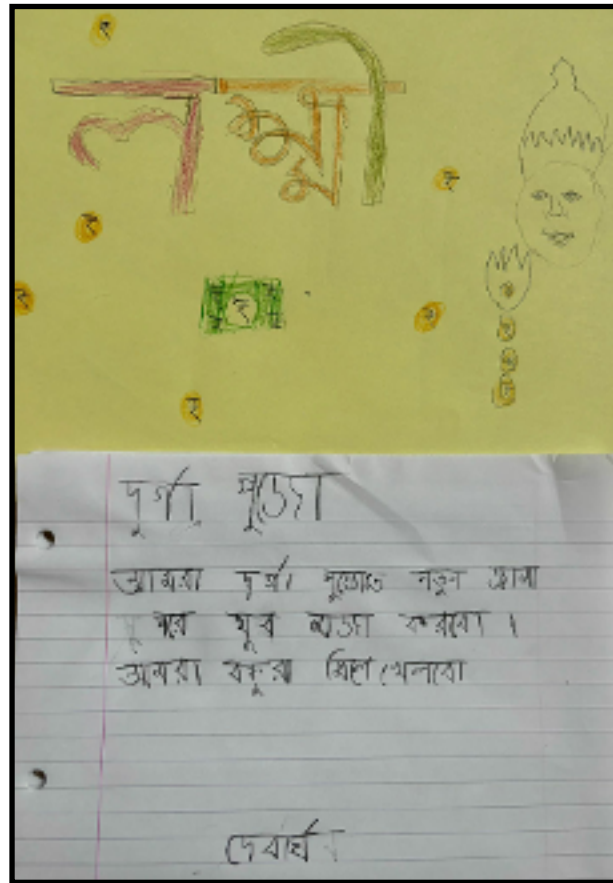 ₹
লক্ষ্মী
₹
₹
₹
₹
₹
₹
দুর্গা পুজো
আমরা দুর্গা পুজোতে নতুন জামা
পরে খুব মজা করবো।
আমরা বন্ধুরা মিলে খেলবো
দেবার্ঘ